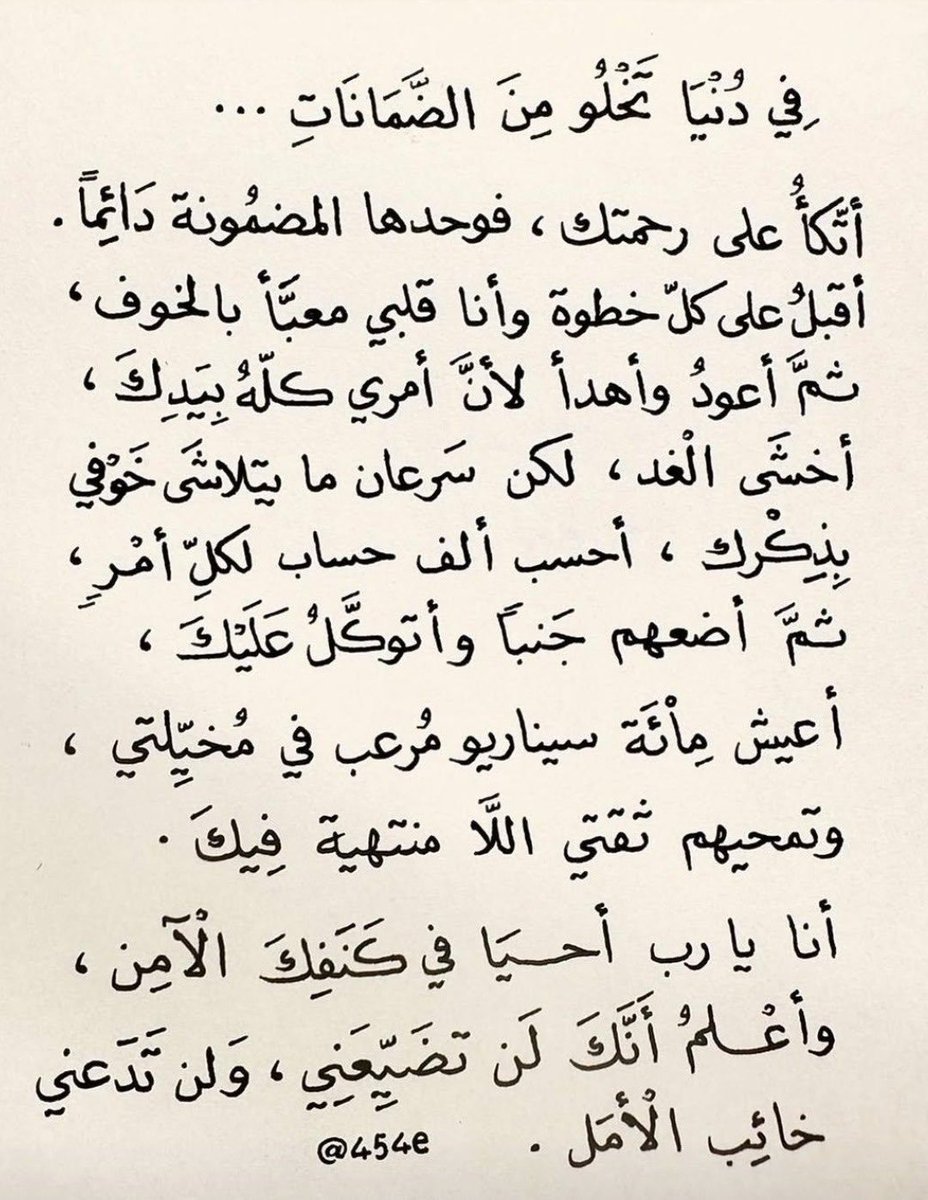 فِي دُنْيَا تَخْلُو مِنَ الضَّمَانَاتِ ...
أتّكأُ على رحمتك ، فوحدها المضمُونة دَائِماً .
أقبلُ على كلّ خطوة وأنا قلبي معبَّأ بالخوف ،
ثمَّ أعودُ وأهدأ لأنَّ أمري كلّهُ بِيَدِكَ ،
أخشَى الْغد ، لكن سَرعان ما يتلاشَى خَوْفي
بِذِكْرك ، أحسب ألف حساب لكلِّ أمْرٍ ،
ثمَّ أضعهم جَنباً وأتوكَّلُ عَلَيْكَ ،
أعيش مِأْئَة سيناريو مُرعب في مُخيِّلتي ،
وتمحيهم ثقتي اللَّا منتهية فِيكَ .
أنا يا رب أحيَا في كَنَفِكَ الْآمِن ،
وأعْلمُ أَنَّكَ لَن تضَيِّعَنِي ، وَلن تَدَعني
خائِب الْأمَل .
@454e